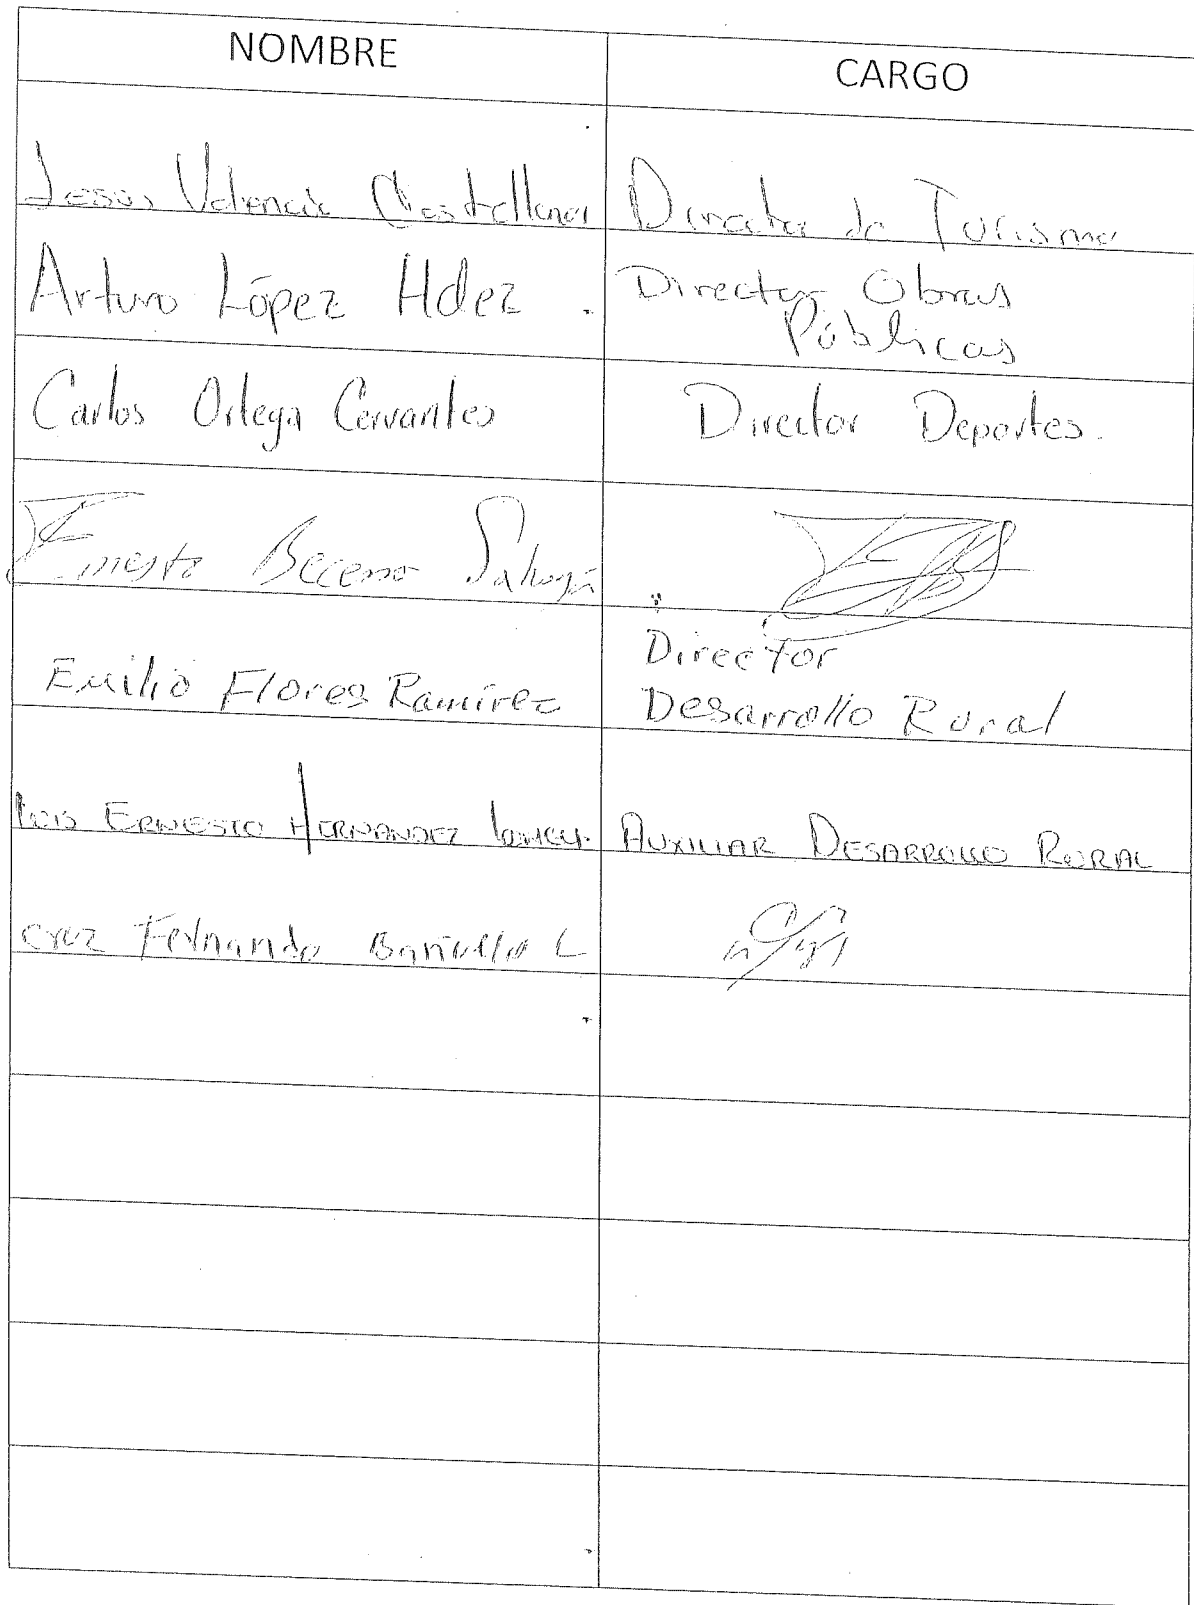 NOMBRE
CARGO
Jesús Valencia Castellanos
Director de Turismo
Arturo López Hdez.
Director Obras
Públicas
Carlos Ortega Cervantes
Director Deportes.
Ernesto Becerra
Emilio Flores Ramírez
Director
Desarrollo Rural
ERNESTO HERNANDEZ
AUXILIAR DESARROLLO RURAL
Cruz Fernando Bañuelos L